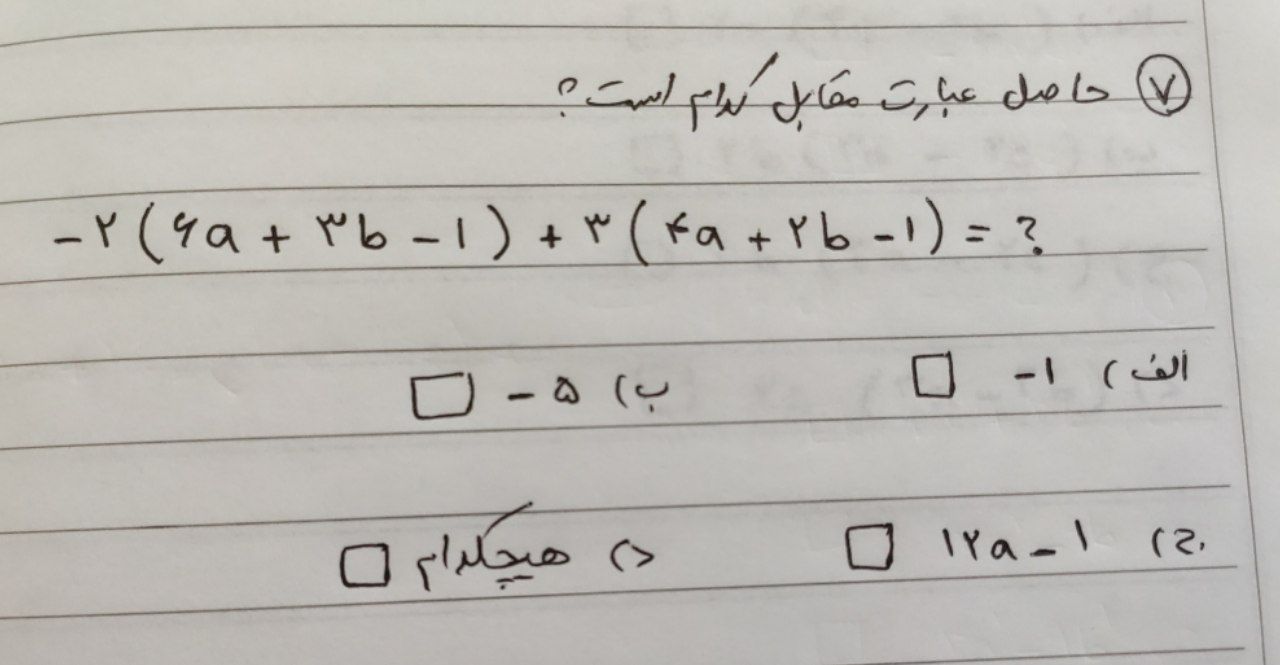 ۷ حاصل عبارت مقابل کدام است؟
-۲(۶a + ۳b - ۱) + ۳(۴a + ۲b - ۱) = ?
الف) -۱ ب) -۵
ج) ۱۲a - ۱ د) هیچکدام